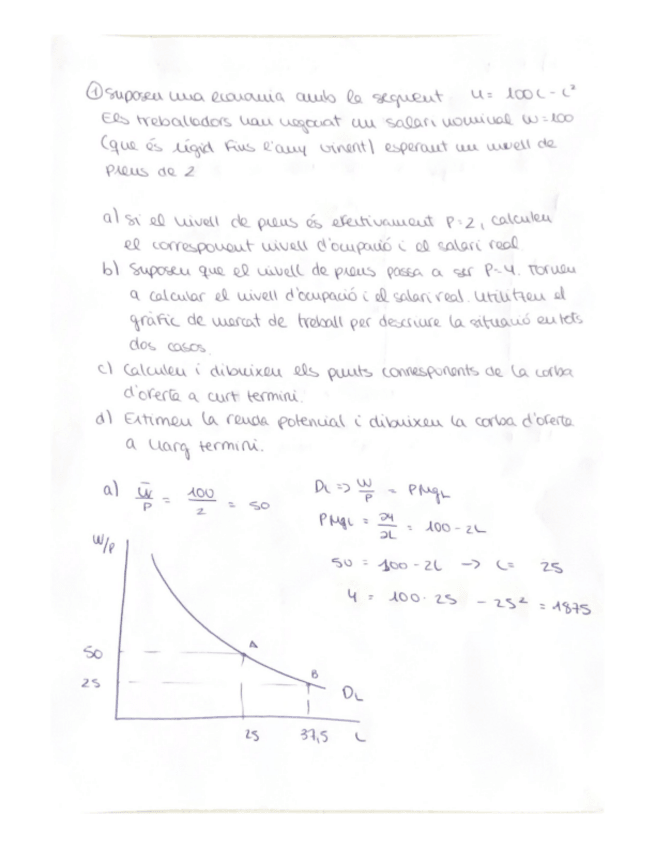 ① Suposeu una economia amb la següent Y = 100L - L²
Els treballadors han negociat un salari nominal W = 100
(que és rígid fins l'any vinent) esperant un nivell de
preus de 2
a) Si el nivell de preus és efectivament P = 2, calculeu
el corresponent nivell d'ocupació i el salari real
b) Suposeu que el nivell de preus passa a ser P = 4. Torneu
a calcular el nivell d'ocupació i el salari real. Utilitzeu el
gràfic de mercat de treball per descriure la situació en tots
dos casos.
c) Calculeu i dibuixeu els punts corresponents de la corba
d'oferta a curt termini.
d) Estimeu la renda potencial i dibuixeu la corba d'oferta
a llarg termini.
a) W̄/P = 100/2 = 50
DL => W/P = PMgL
PMgL = ∂Y/∂L = 100 - 2L
50 = 100 - 2L -> L = 25
Y = 100 · 25 - 25² = 1875
W/P
50
25
A
B
DL
25 37,5 L